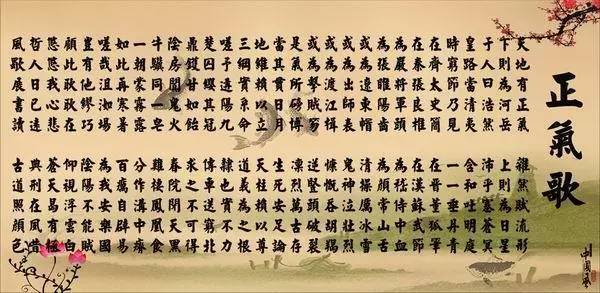 正氣歌
天地有正氣 雜然賦流形
下則為河岳 上則為日星
于人曰浩然 沛乎塞蒼冥
皇路當清夷 含和吐明庭
時窮節乃見 一一垂丹青
在齊太史簡 在晉董狐筆
在秦張良椎 在漢蘇武節
為嚴將軍頭 為嵇侍中血
為張睢陽齒 為顏常山舌
或為遼東帽 清操厲冰雪
或為出師表 鬼神泣壯烈
或為渡江楫 慷慨吞胡羯
或為擊賊笏 逆豎頭破裂
是氣所磅礴 凜烈萬古存
當其貫日月 生死安足論
地維賴以立 天柱賴以尊
三綱實系命 道義為之根
嗟予遘陽九 隸也實不力
楚囚纓其冠 傳車送窮北
鼎鑊甘如飴 求之不可得
陰房闃鬼火 春院閟天黑
牛驥同一皂 雞棲鳳凰食
一朝蒙霧露 分作溝中瘠
如此再寒暑 百癘自辟易
嗟哉沮洳場 為我安樂國
豈有他繆巧 陰陽不能賊
顧此耿耿在 仰視浮雲白
悠悠我心悲 蒼天曷有極
哲人日已遠 典刑在夙昔
風檐展書讀 古道照顏色
中國風